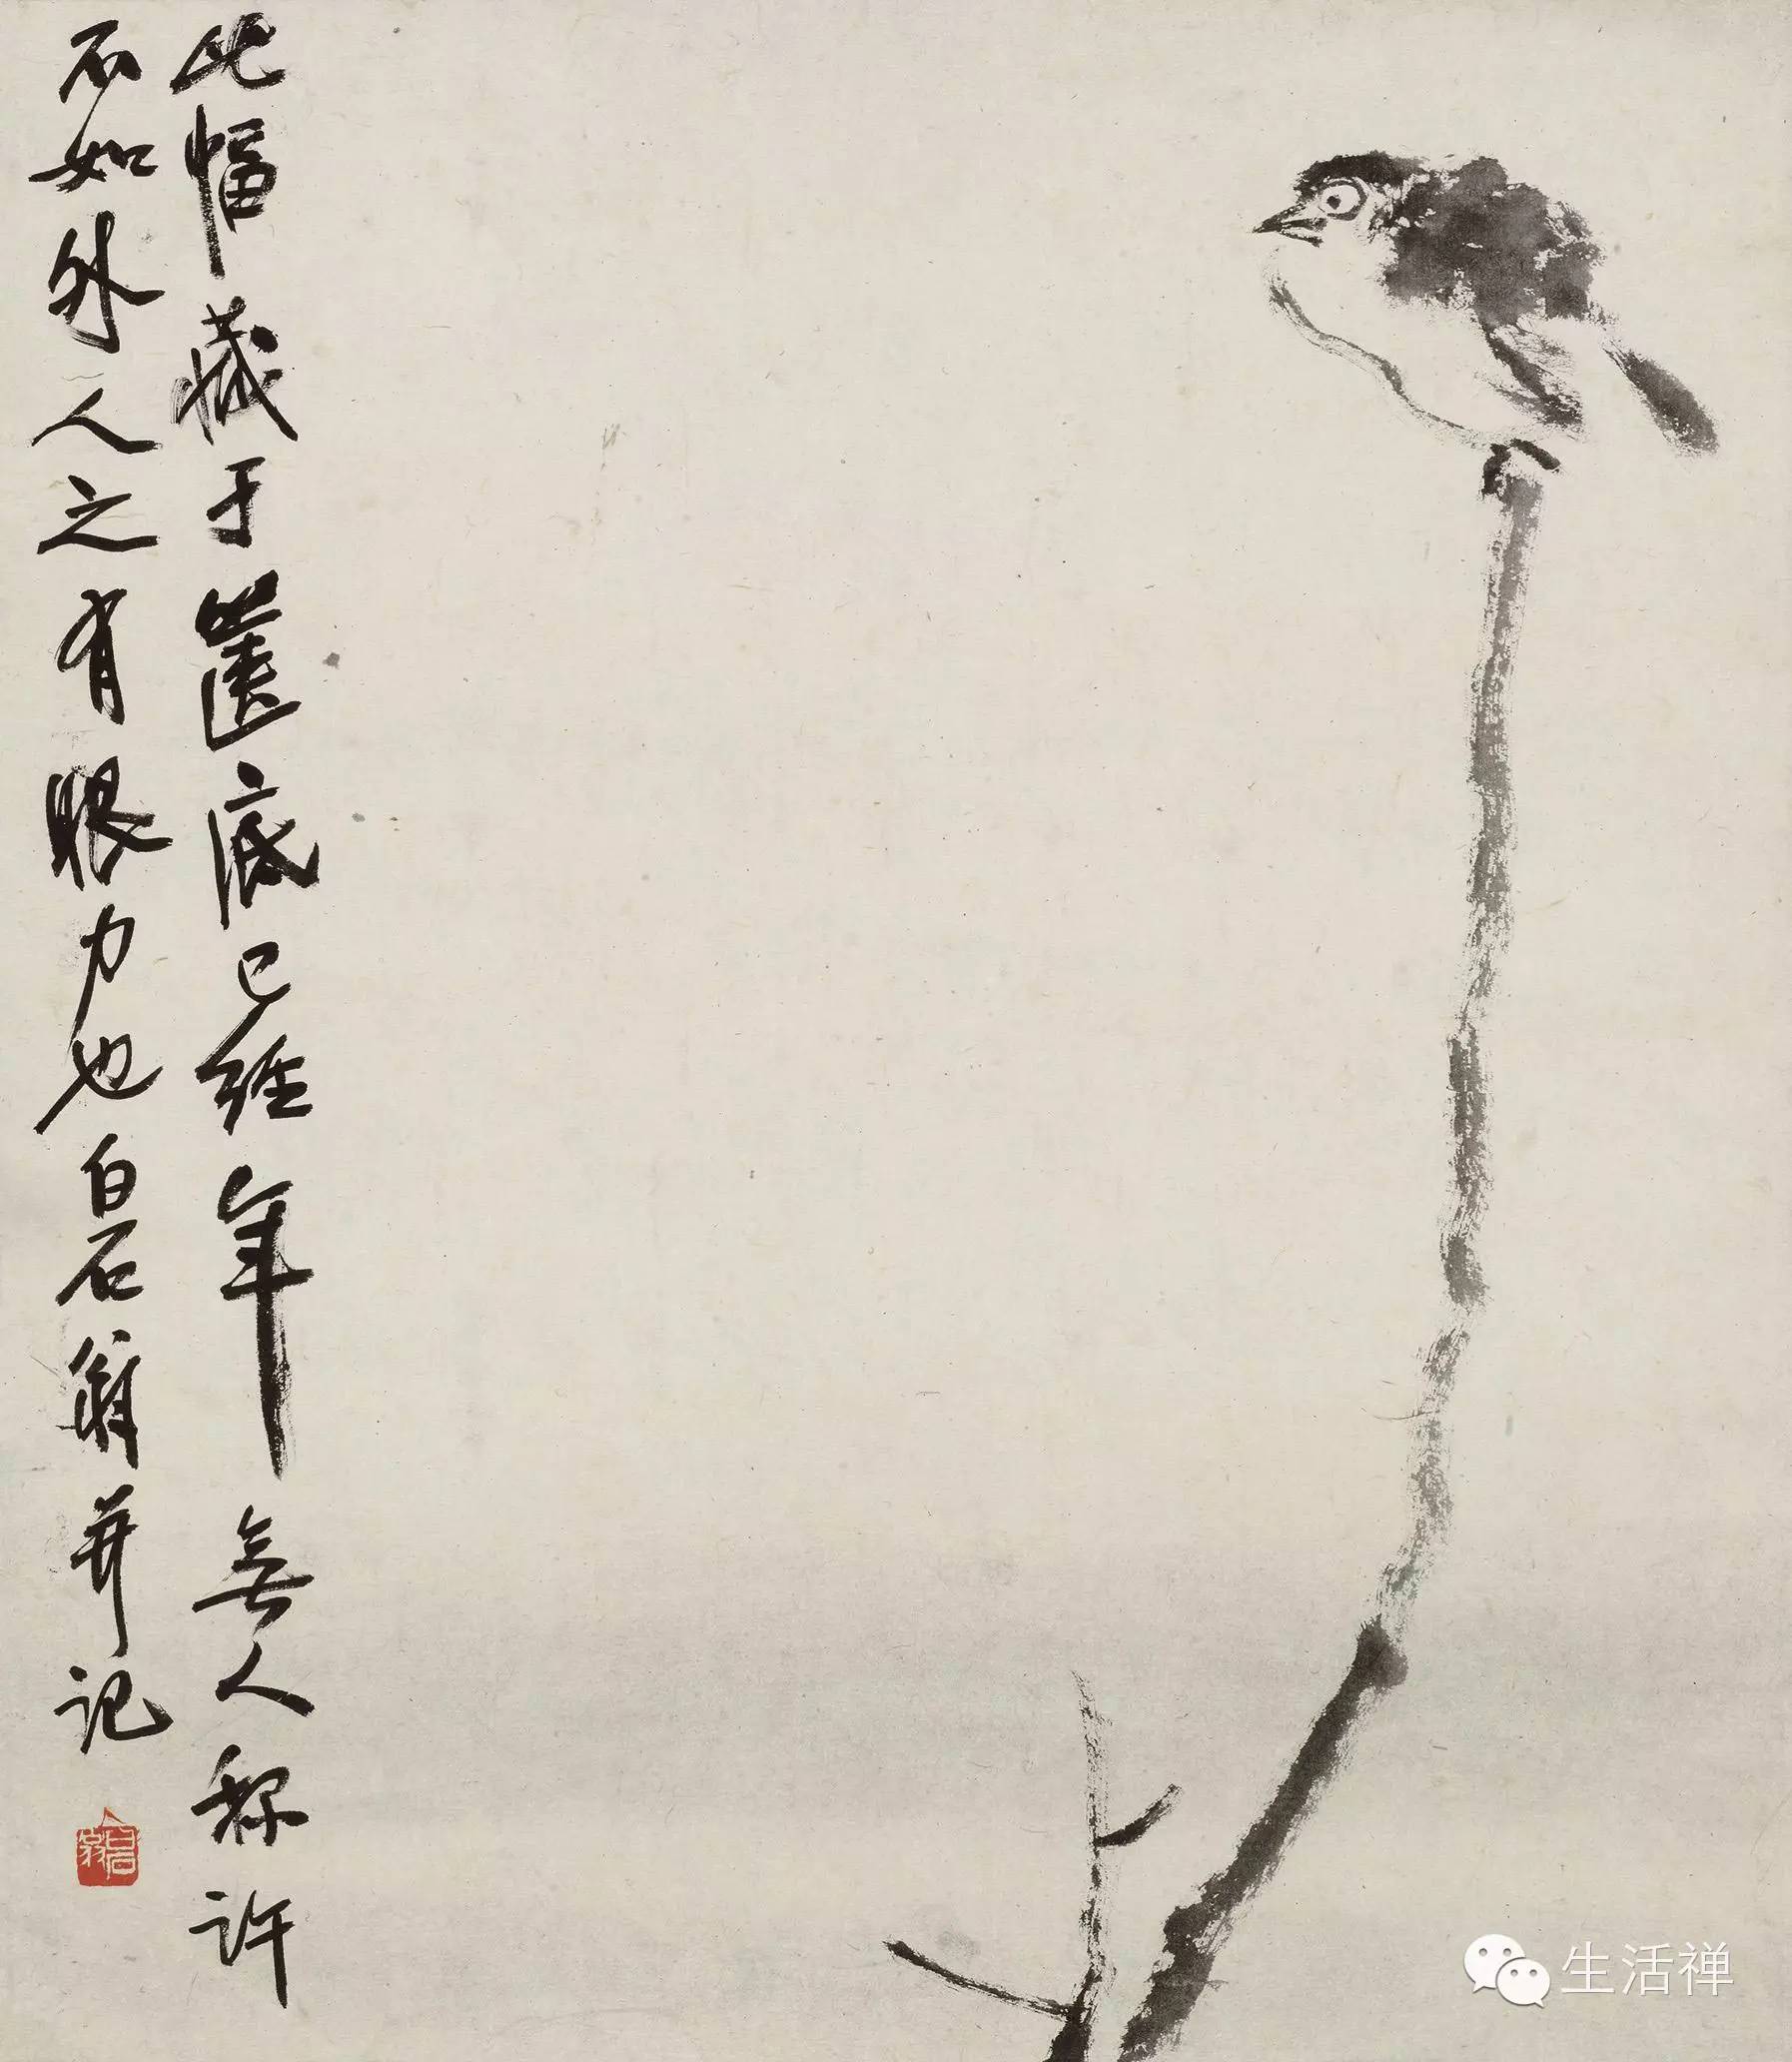 此幅藏于底已經年無人称許
不如外人之有眼力也白石翁并記
白石翁
生活禅